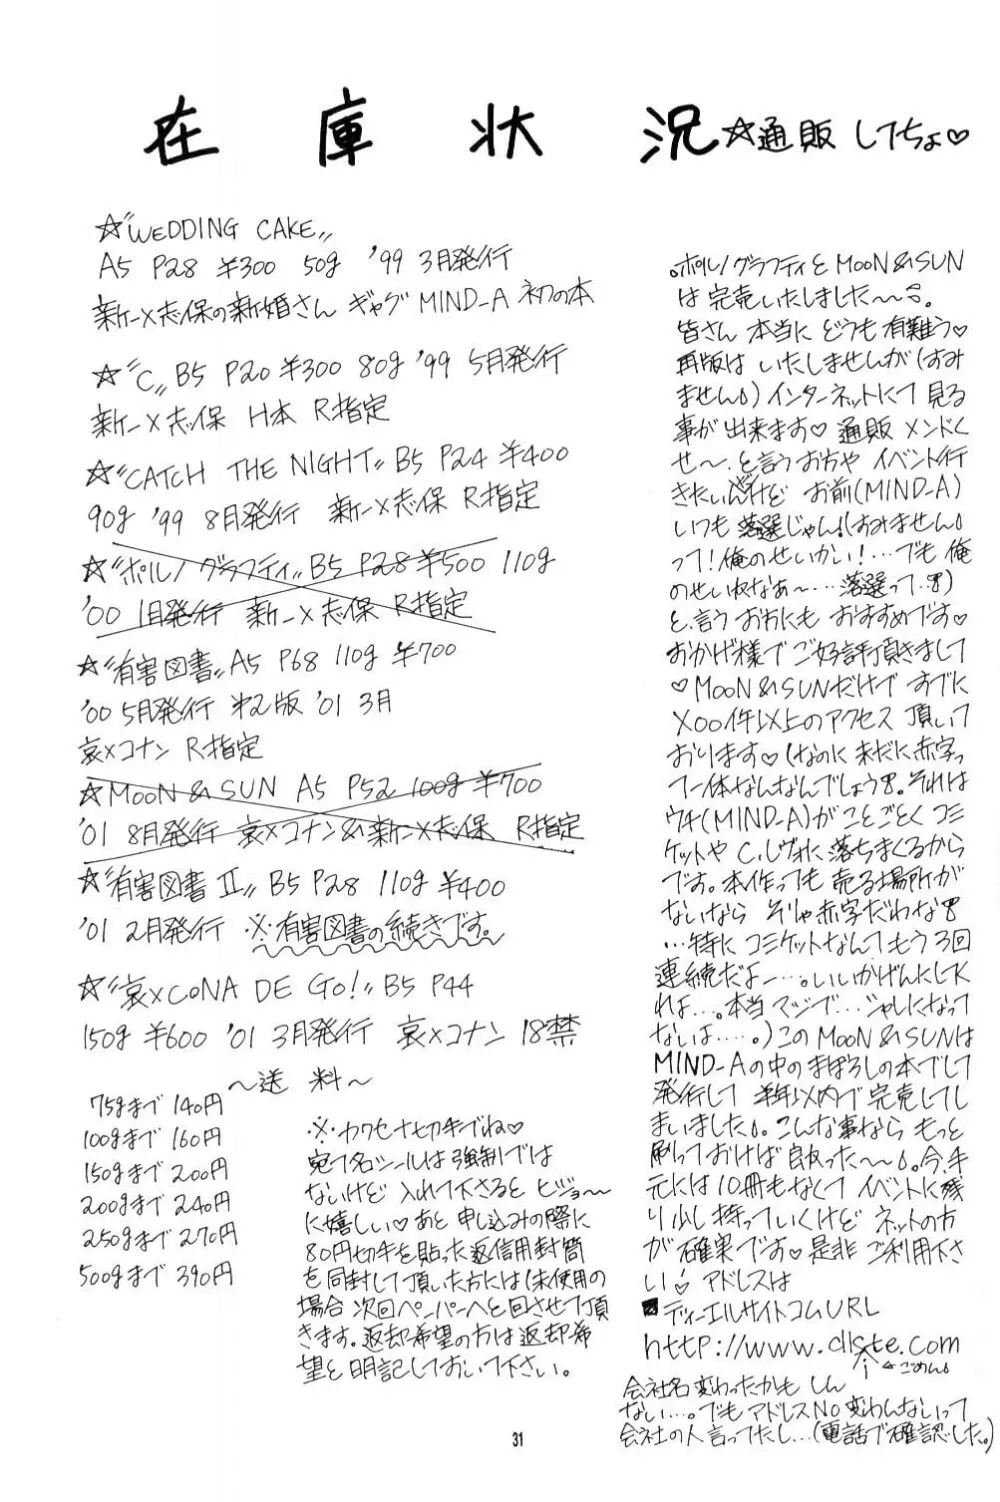 在庫状況 ☆通販してちょ♡
☆"WEDDING CAKE"
A5 P28 ¥300 50g '99 3月発行
新一×志保の新婚さん ギャグ MIND-A 初の本
☆"C" B5 P20 ¥300 80g '99 5月発行
新一×志保 H本 R指定
☆"CATCH THE NIGHT" B5 P24 ¥400
90g '99 8月発行 新一×志保 R指定
☆"ポルノグラフティ" B5 P28 ¥500 110g
'00 1月発行 新一×志保 R指定
☆"有害図書" A5 P68 110g ¥700
'00 5月発行 第2版 '01 3月
哀×コナン R指定
☆MOON & SUN A5 P52 100g ¥700
'01 8月発行 哀×コナン&新一×志保 R指定
☆"有害図書 II" B5 P28 110g ¥400
'01 2月発行 ※有害図書の続きです。
☆"哀×CONA DE GO!" B5 P44
150g ¥600 '01 3月発行 哀×コナン 18禁
〜送料〜
75gまで 140円
100gまで 160円
150gまで 200円
200gまで 240円
250gまで 270円
500gまで 390円
※カワセナ切手でね♡
宛て名シールは強制では
ないけど 入れて下さると ヒジョ〜
に嬉しい♡あと 申し込みの際に
80円切手を貼った返信用封筒
を同封して頂いた方には(未使用の
場合 次回ペーパーへと回させて頂
きます。返却希望の方は返却希
望と明記しておいて下さい。
。ポルノグラフティとMOON&SUN
は完売いたしました〜。
皆さん 本当に どうも有難う♡
再版は いたしませんが(すみ
ません)インターネットにて 見る
事が出来ます♡通販 メンドく
せ〜。と言うお方や イベント行
きたいんだけど お前(MIND-A)
いつも 落選じゃん!(すみません
って!俺のせいかい!…でも 俺
のせいねなぁ〜…落選って)
と、言う お方にも おすすめです♡
おかげ様で ご好評頂きまして
♡MOON&SUNだけで すでに
×00件以上のアクセス 頂いて
おります♡(なのに 未だに赤字っ
て一体なんなんでしょう。それは
ウチ(MIND-A)が ことごとく コミ
ケットや C.レヴォに 落ちまくるから
です。本作っても 売る場所が
ないなら そりゃ赤字だわな
…特に コミケットなんて もう 3回
連続だよー…。いいかげんにしてく
れよ…。本当 マジで…シャレになって
ないよ……。)この MOON&SUNは
MIND-Aの中の まぼろしの本でして
発行して 半年以内で 完売してし
まいました。こんな事なら もっと
刷っておけば 良かった〜。今、手
元には 10冊もなくて イベントに残
り少し 持っていくけど ネットの方
が 確実です♡是非 ご利用下さ
い♡ アドレスは
■ディーエルサイトコムURL
http://www.dlsite.com
ごめん
会社名変わったかもしん
ない…。でもアドレスNo変わんないって
会社の人言ってたし…(電話で確認した。)
31